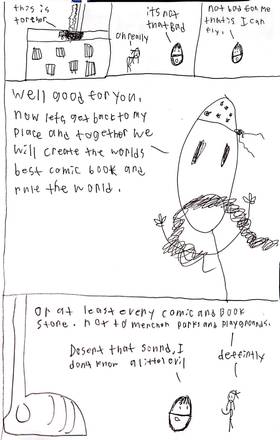 this is
torther
oh really
its not
that bad
not bad for me
thats is I can
fly.
Well good for you,
now lets get back to my
place and together we
will create the worlds
best comic book and
rule the world.
Or at least every comic and book
store. not to menchon parks and playgrounds.
Dosent that sound, I
dont know a littel evil
deffintly